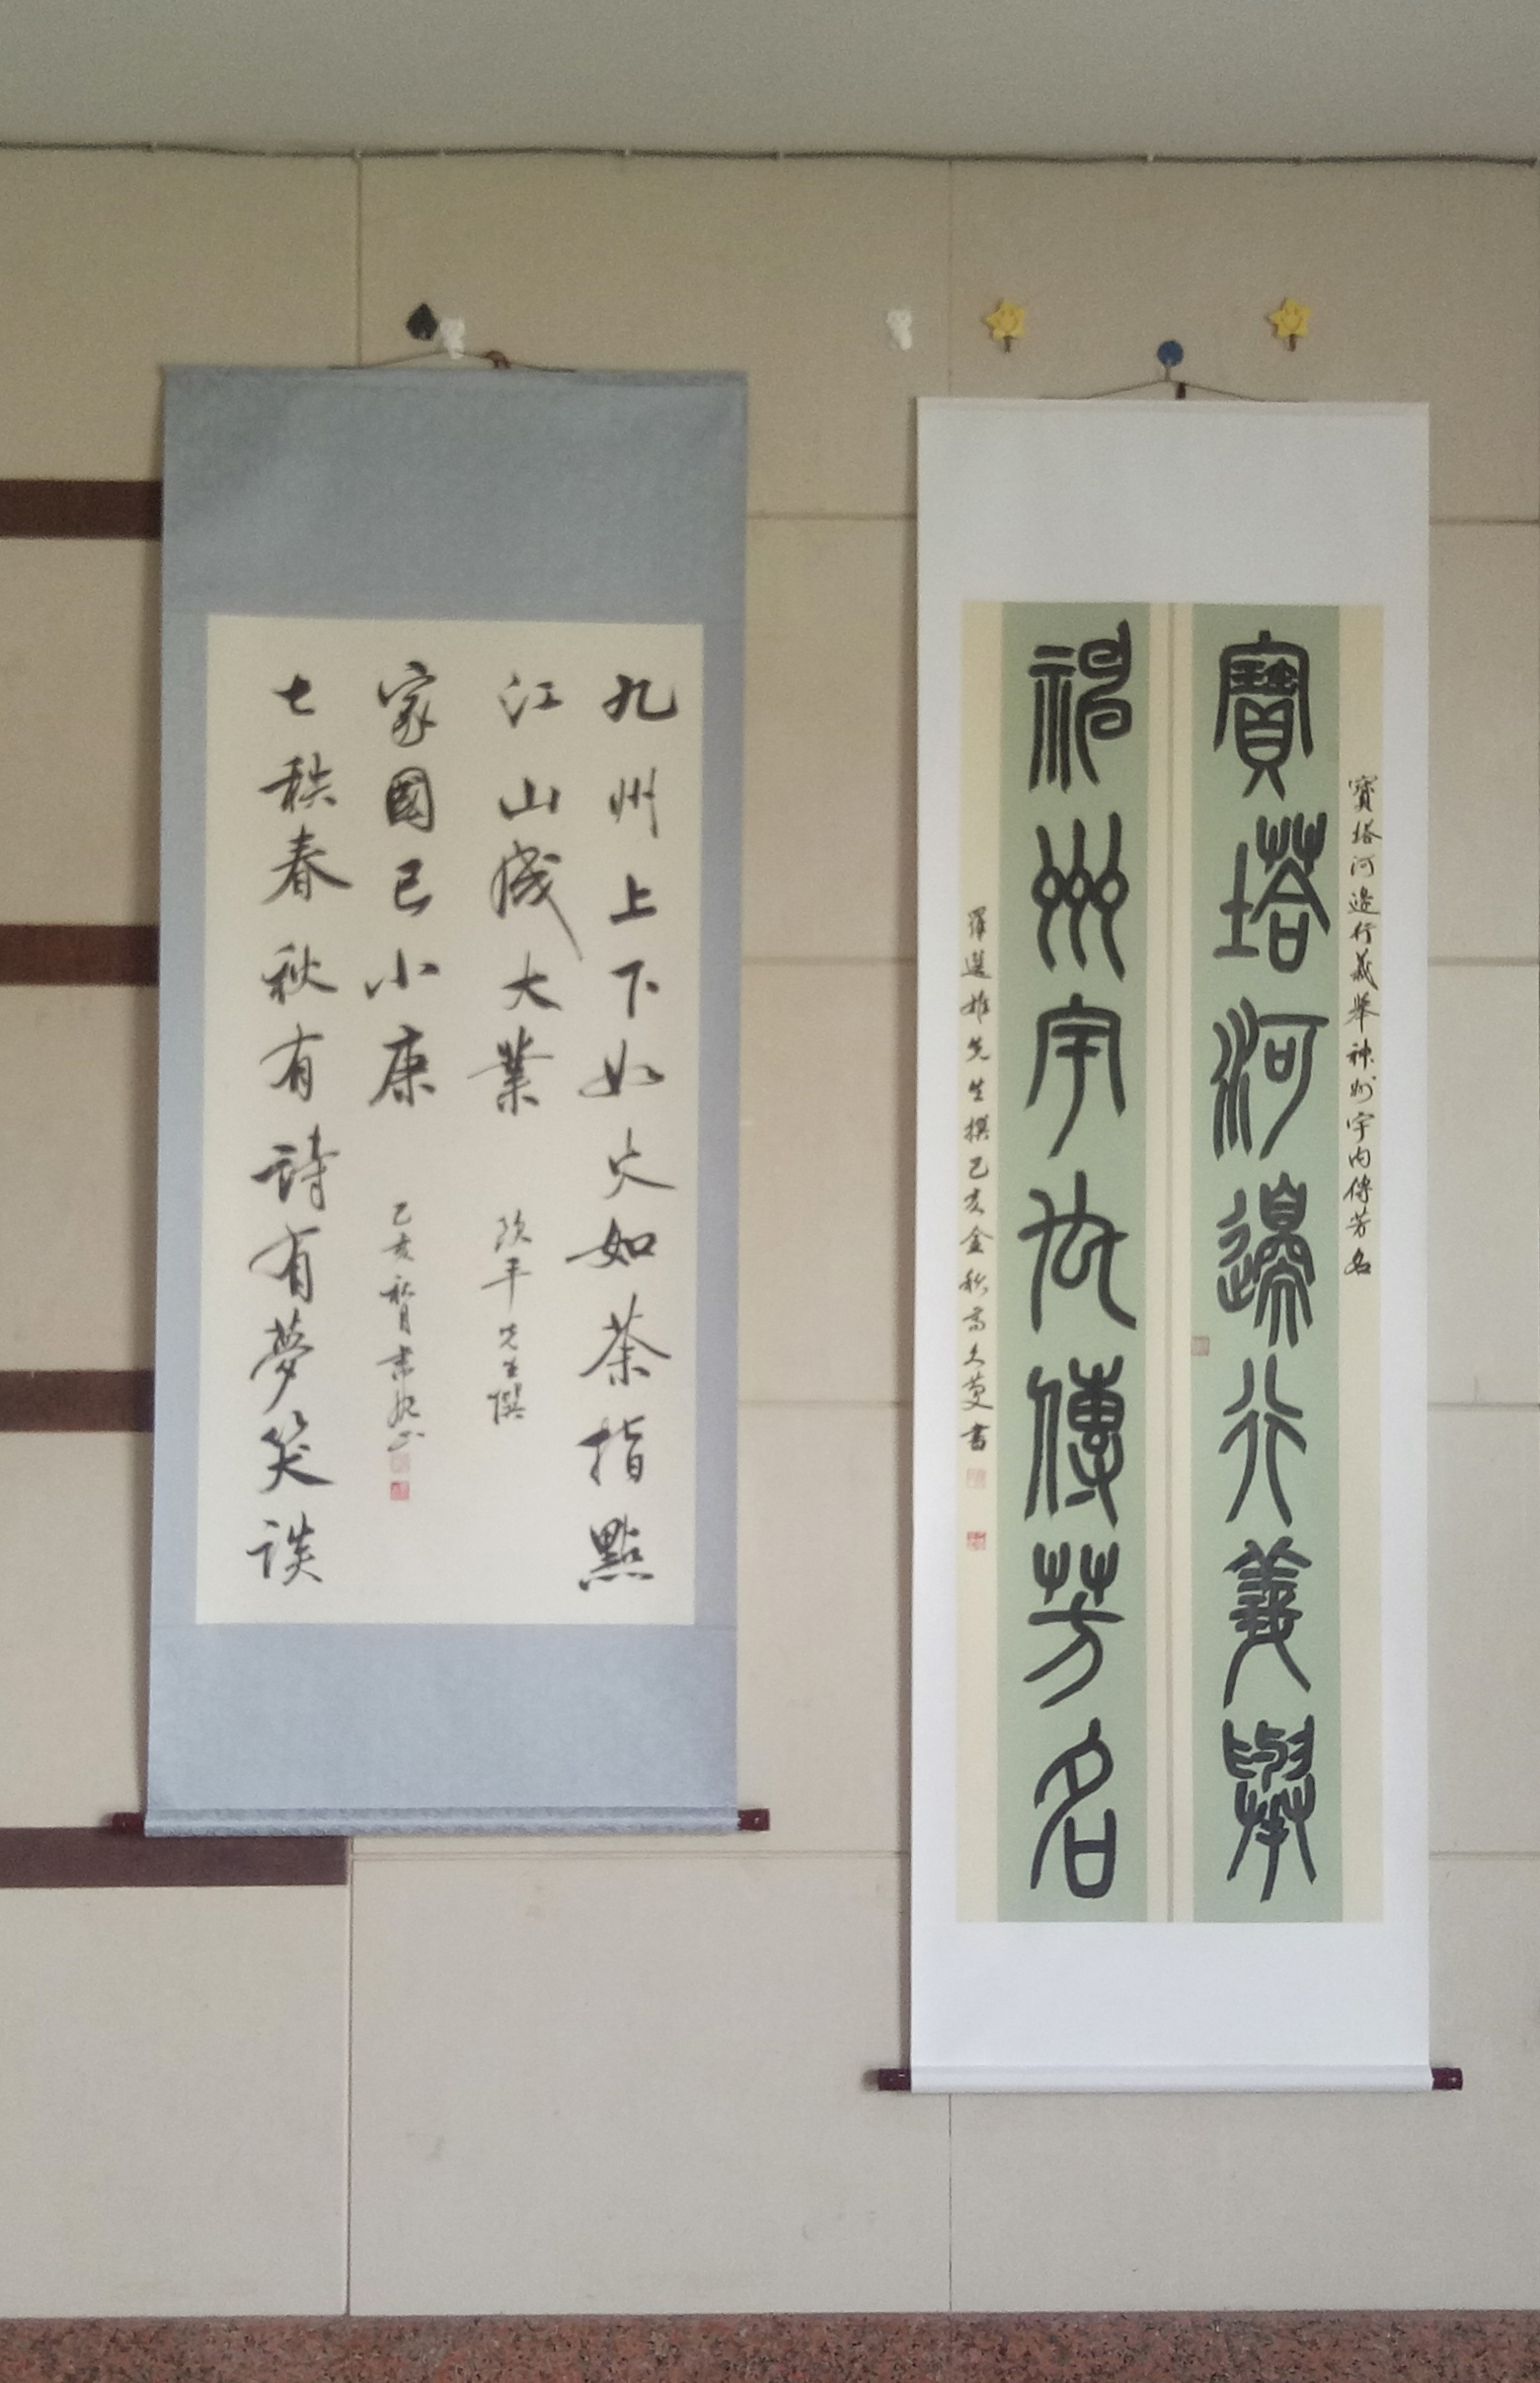 寶塔河邊行義舉神州宇内傳芳名
寶塔河邊行義舉
神州宇内傳芳名
先生撰己亥金秋書
九州上下如火如荼指點
江山成大業
平先生撰
家國已小康
己亥秋月書
七秩春秋有詩有夢笑談